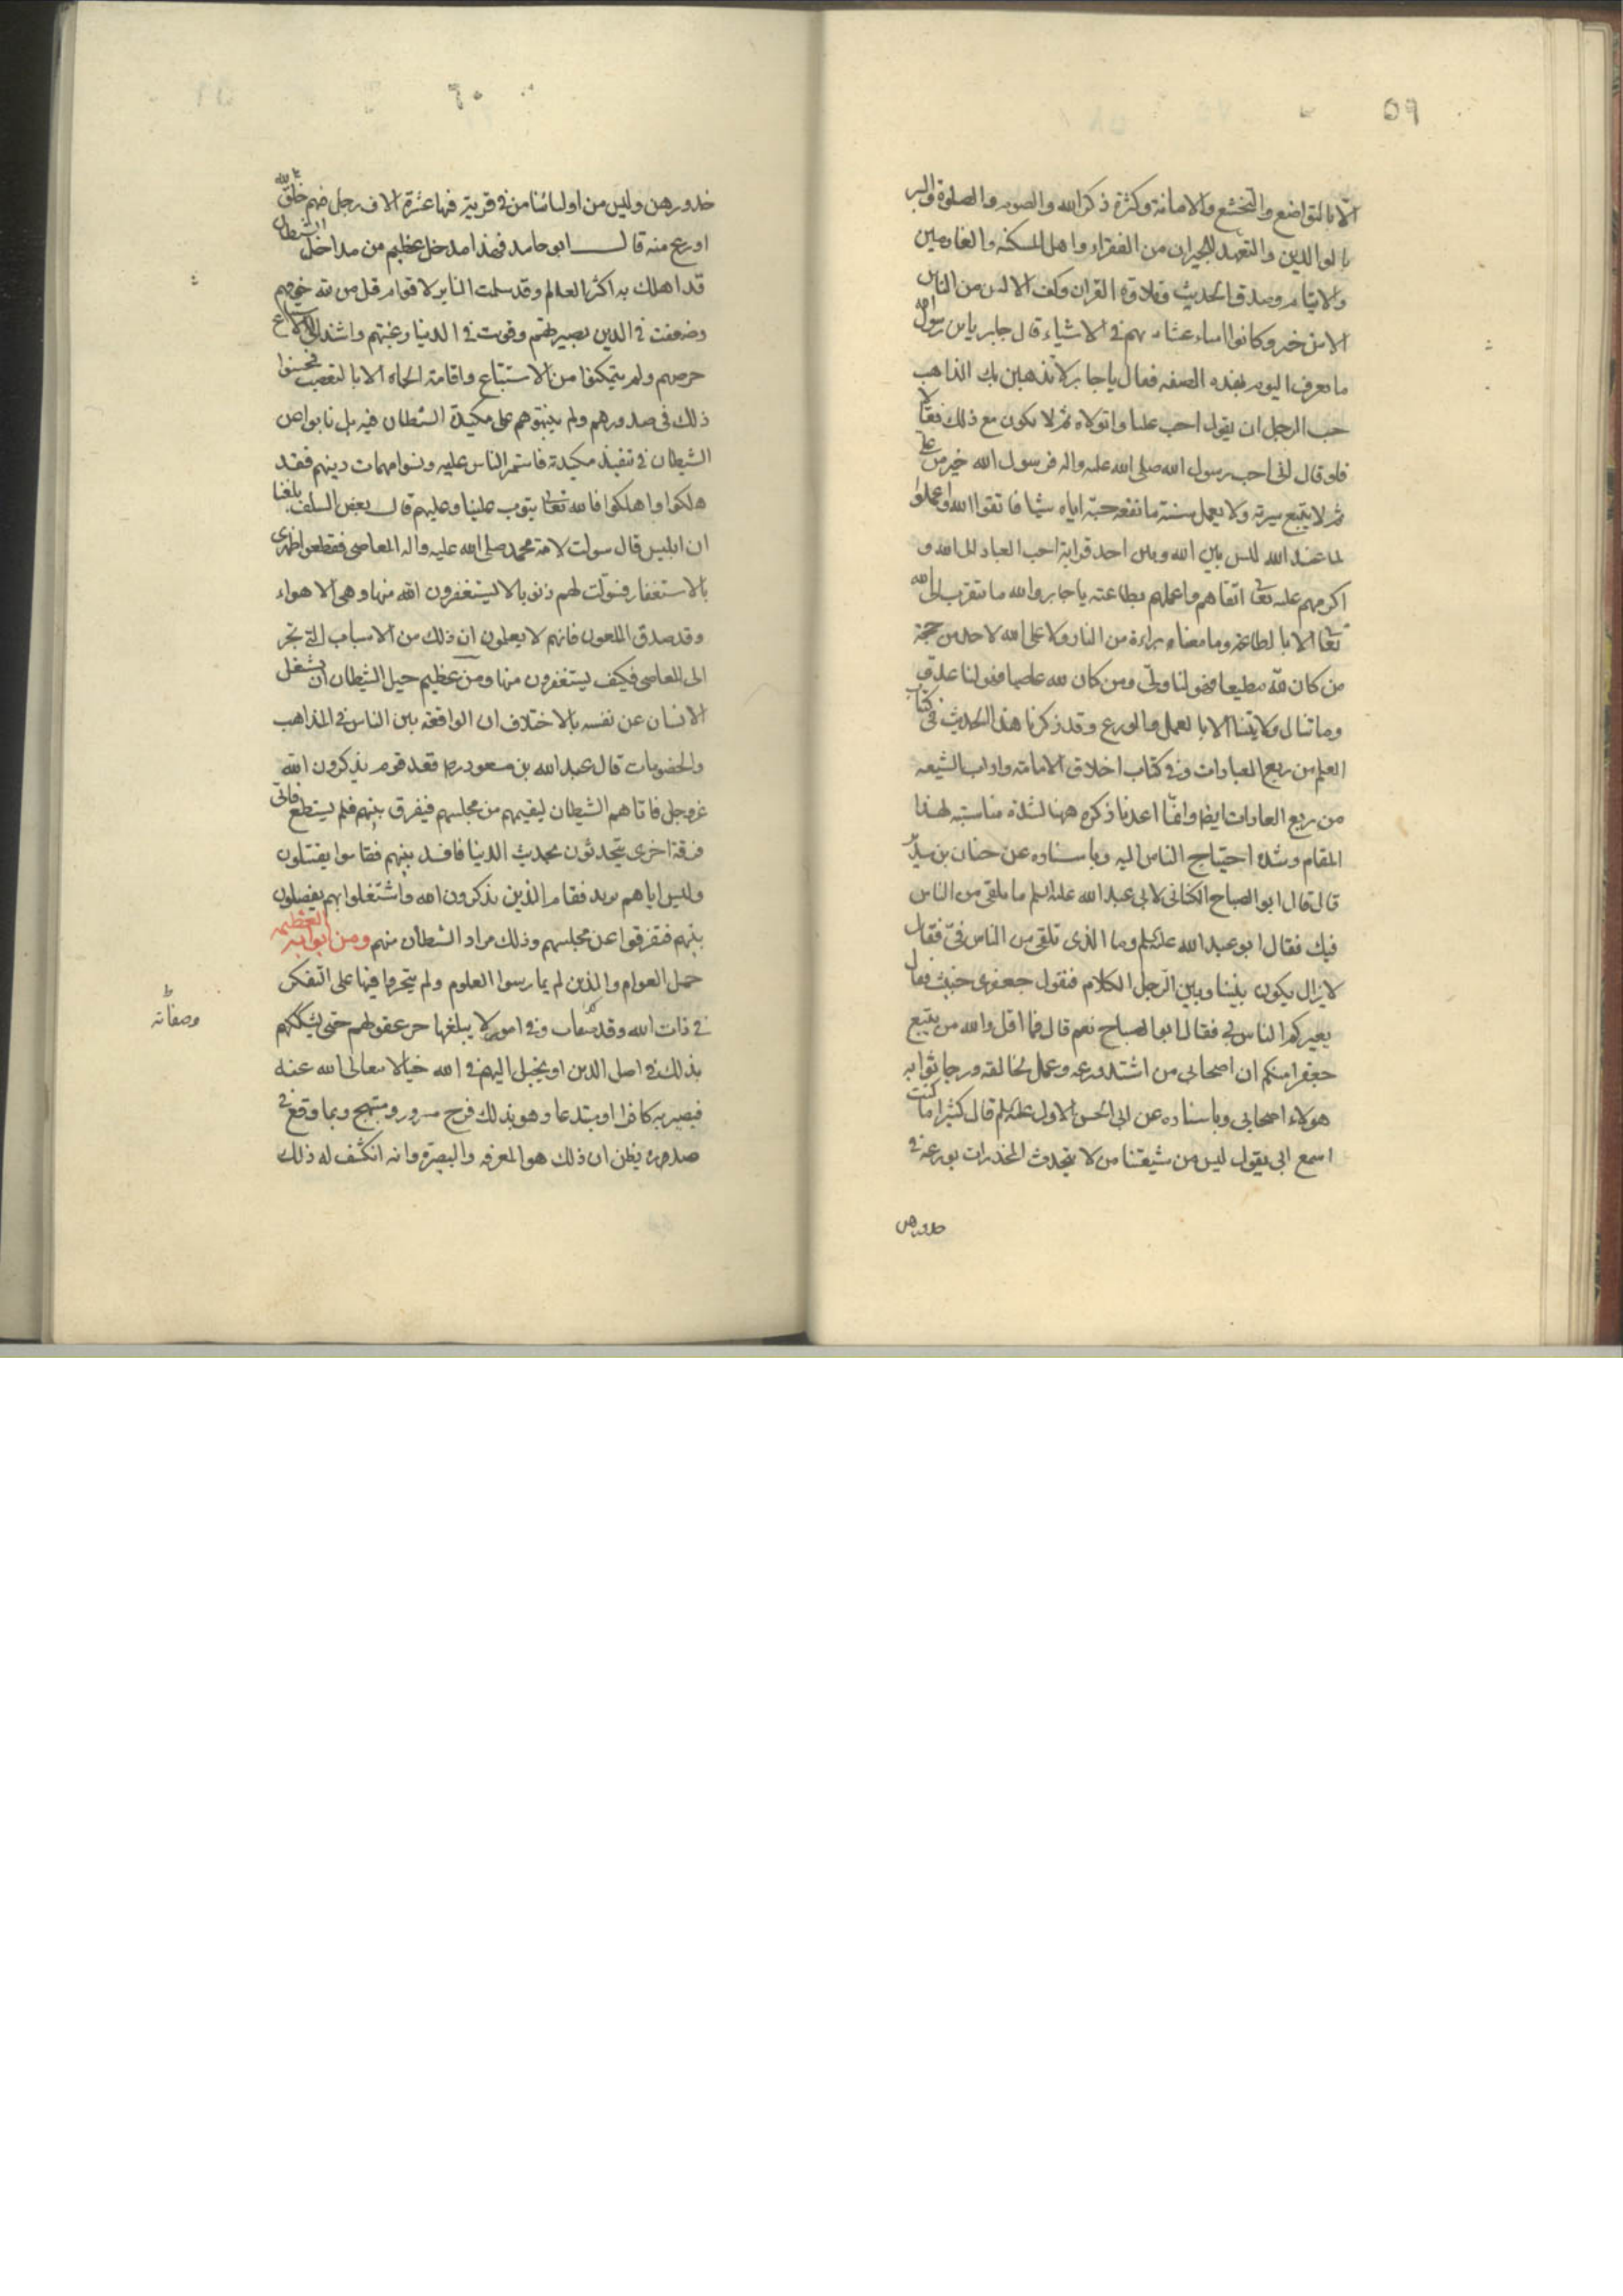 ٥٩
الا بالتواضع والتخشع والامانة وكثرة ذكر الله والصوم والصلوة والبر
بالوالدين والتعهد للجيران من الفقراء واهل المسكنه والغارمين
والايتام وصدق الحديث وتلاوة القران وكف الالسن من الناس
الا من خير وكانوا امناء عشائرهم فى الاشياء قال جابر يابن رسول الله
ما نعرف اليوم بهذه الصفه فقال يا جابر لا تذهبن بك المذاهب
حب الرجل ان يقول احب عليا واتولاه ثم لا يكون مع ذلك فعّالا
فلو قال انى احب رسول الله صلى الله عليه واله فرسول الله خير من على
ثم لا يتبع سيرته ولا يعمل بسنته ما نفعه حبه اياه شيئا فاتقوا الله واعملوا
لما عند الله ليس بين الله وبين احد قرابة احب العباد الى الله و
اكرمهم عليه تعالى اتقاهم واعملهم بطاعته يا جابر والله ما نتقرب الى الله
تعالى الا بالطاعة وما معناه براءة من النار ولا على الله لاحد من حجة
من كان لله مطيعا فهو لنا ولى ومن كان لله عاصيا فهو لنا عدو
وما تنال ولايتنا الا بالعمل والورع وقد ذكرنا هذا الحديث فى كتاب
العلم من ربع العبادات وفى كتاب اخلاق الامامة واداب الشيعه
من ربع العادات ايضا وانما اعدنا ذكره ههنا لشدة مناسبته لهذا
المقام وشدة احتياج الناس اليه وباسناده عن حنان بن سدير
قال قال ابو الصباح الكنانى لابى عبد الله عليه السلم ما نلقى من الناس
فيك فقال ابو عبد الله عليه السلم وما الذى تلقى من الناس فىّ فقال
لا يزال يكون بيننا وبين الرجل الكلام فيقول جعفرى خبيث فقال
يعيركم الناس بى فقال ابو الصباح نعم قال فما اقل والله من يتبع
جعفرا منكم ان اصحابى من اشتد ورعه وعمل لخالقه ورجا ثوابه
هولاء اصحابى وباسناده عن ابى الحسن الاول عليه السلم قال كثيرا ما كنت
اسمع ابى يقول ليس من شيعتنا من لا يتحدث المخدرات بورعه فى
خدورهن
٦٠
خدورهن وليس من اوليائنا من فى قرية فيها عشرة الاف رجل فيهم خلق الله
اورع منه قال ابو حامد فهذا مدخل عظيم من مداخل الشيطان
قد اهلك به اكثر العالم وقد سلمت المنابر لاقوام قل من الله خوفهم
وضعفت فى الدين بصيرتهم وقويت فى الدنيا رغبتهم واشتد على الاستتباع
حرصهم ولم يتمكنوا من الاستتباع واقامة الجاه الا بالتعصب فحسنوا
ذلك فى صدورهم ولم ينبهوهم على مكيدة الشيطان فيه بل نابوا عن
الشيطان فى تنفيذ مكيدته فاستمر الناس عليه ونسوا مهمات دينهم فقد
هلكوا واهلكوا فالله تعالى يتوب علينا وعليهم قال بعض السلف بلغنا
ان ابليس قال سولت لامة محمد صلى الله عليه واله المعاصى فقطعوا ظهرى
بالاستغفار فسولت لهم ذنوبا لا يستغفرون الله منها وهى الاهواء
وقد صدق الملعون فانهم لا يعلمون ان ذلك من الاسباب التى تجر
الى المعاصى فكيف يستغفرون منها ومن عظيم حيل الشيطان ان يشغل
الانسان عن نفسه بالاختلافات الواقعة بين الناس فى المذاهب
والخصومات قال عبد الله بن مسعود رض قعد قوم يذكرون الله
عز وجل فاتاهم الشيطان ليقيمهم من مجلسهم فيفرق بينهم فلم يستطع فاتى
فرقة اخرى يتحدثون بحديث الدنيا فافسد بينهم فقاموا يقتتلون
وليس اياهم يريد فقام الذين يذكرون الله واشتغلوا بهم يفصلون
بينهم فتفرقوا عن مجلسهم وذلك مراد الشيطان منهم ومن ابوابه العظيمه
حمل العوام والذين لم يمارسوا العلوم ولم يتبحروا فيها على التفكر
فى ذات الله وفى امور لا يبلغها حد عقولهم حتى يشككهم
وصفاته
بذلك فى اصل الدين او يخيل اليهم فى الله خيالا تعالى الله عنه
فيصير به كافرا او مبتدعا وهو بذلك فرح مسرور ومبتهج وبما وقع فى
صدره يظن ان ذلك هو المعرفه والبصيرة وانه انكشف له ذلك